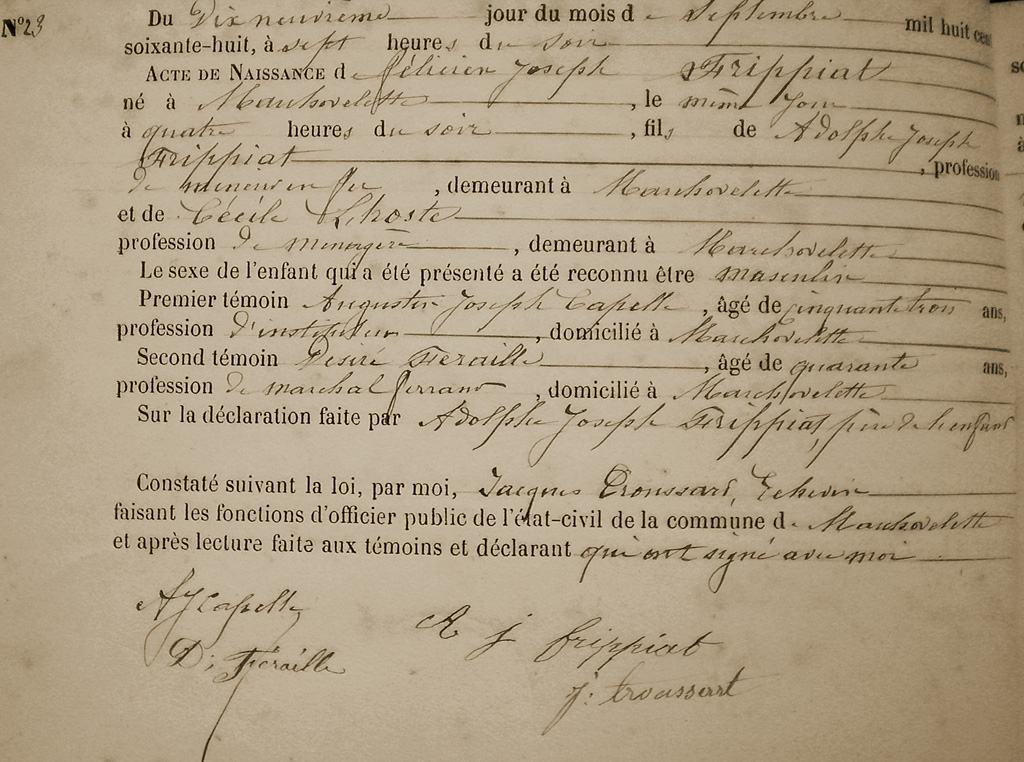 N° 23
Du Dix neuvième jour du mois de Septembre mil huit cen
soixante-huit, à sept heures du soir
ACTE DE NAISSANCE de Félicien Joseph Frippiat
né à Marchovelette, le même jour
à quatre heures du soir, fils de Adolphe Joseph
Frippiat, profession
de mineur en fer, demeurant à Marchovelette
et de Cécile Lhoste
profession de menagère, demeurant à Marchovelette
Le sexe de l'enfant qui a été présenté a été reconnu être masculin
Premier témoin Augustin Joseph Capelle, âgé de cinquante trois ans,
profession d'instituteur, domicilié à Marchovelette
Second témoin Désiré Feraille, âgé de quarante ans,
profession de marchal ferrant, domicilié à Marchovelette
Sur la déclaration faite par Adolphe Joseph Frippiat, père de l'enfant
Constaté suivant la loi, par moi, Jacques Troussart, Echevin
faisant les fonctions d'officier public de l'état-civil de la commune de Marchovelette
et après lecture faite aux témoins et déclarant qui ont signé avec moi
AJ Capelle
A j frippiat
D; Féraille
j: troussart